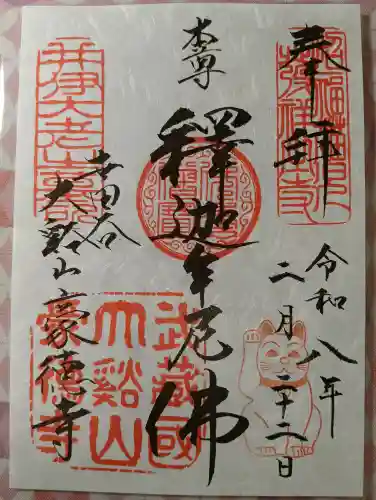 奉拝
令和八年
二月二十二日
本尊
釋迦牟尼佛
世田谷
大谿山豪徳寺
武蔵國
大谿山
豪徳寺